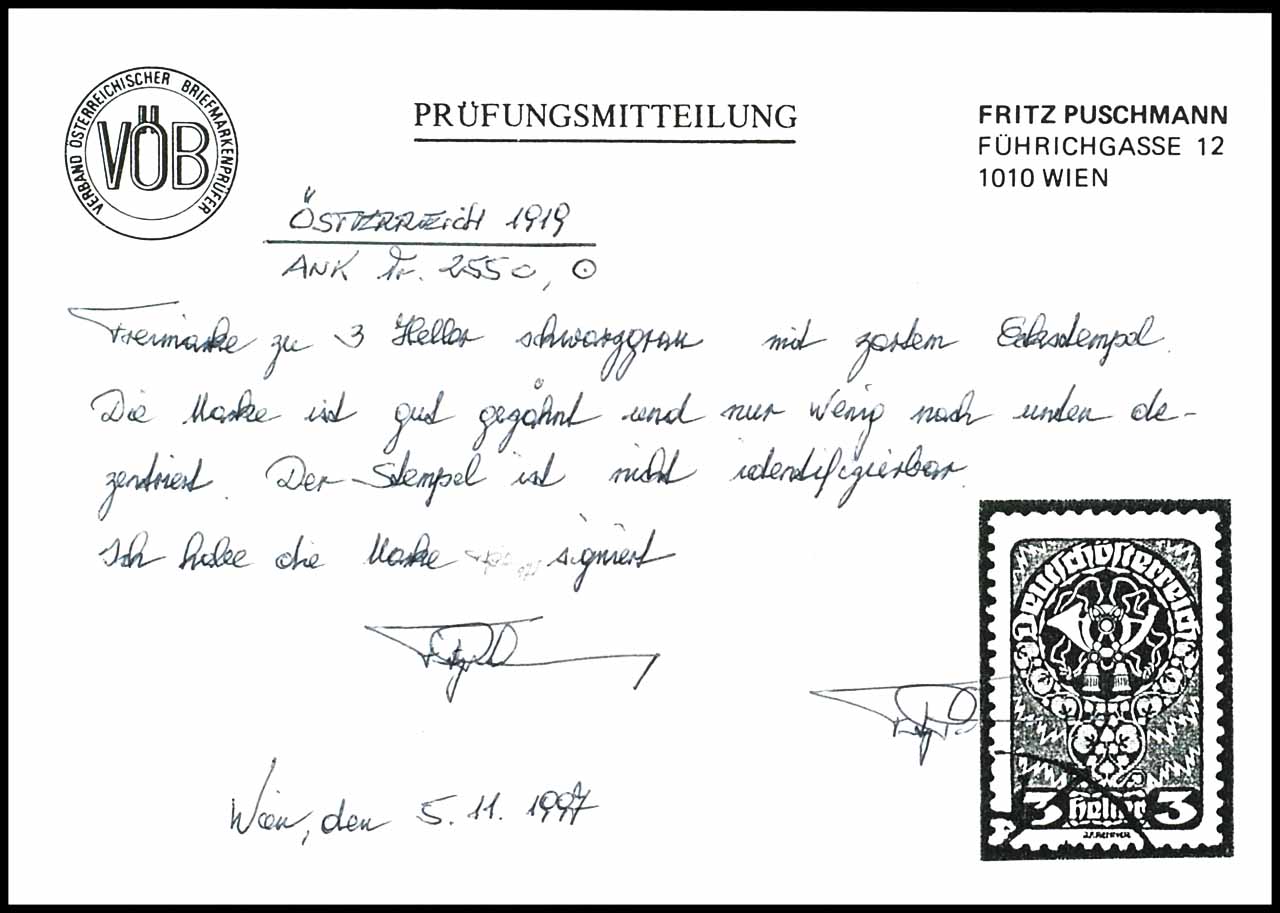 VERBAND ÖSTERREICHISCHER BRIEFMARKENPRÜFER
VÖB
PRÜFUNGSMITTEILUNG
FRITZ PUSCHMANN
FÜHRICHGASSE 12
1010 WIEN
ÖSTERREICH 1919
ANK Nr. 255 c, ⊙
Freimarke zu 3 Heller schwarzgrau mit zartem Eckstempel.
Die Marke ist gut gezähnt und nur wenig nach unten de-
zentriert. Der Stempel ist nicht identifizierbar.
Ich habe die Marke signiert
Wien, den 5.11.1997
Deutschösterreich
3 Heller 3